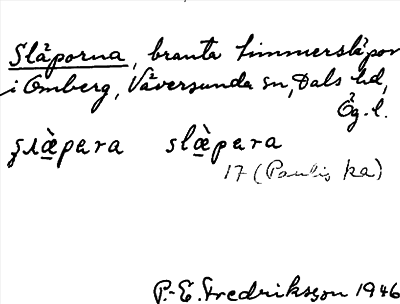 Släporna, branta timmersläpor
i Omberg, Väversunda sn, Dals hd,
Ög. l.
ꞩʟæ̀para slæ̀para
17 (Paulis ka)
P.-E. Fredriksson 1946